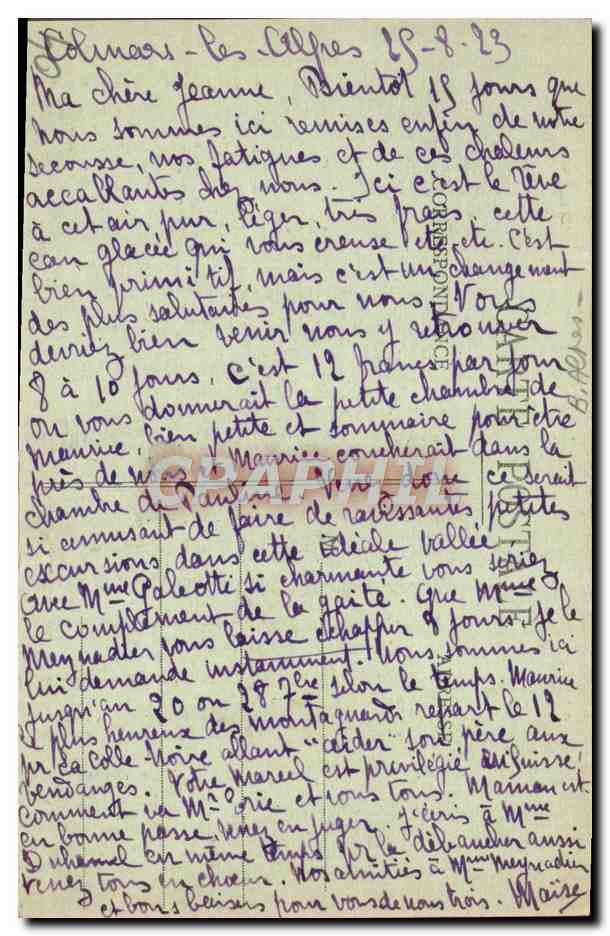 Colmars-les-Alpes 25-8-23
Ma chère Jeanne, Bientôt 15 jours que
nous sommes ici remises enfin de notre
secousse, nos fatigues et de ces chaleurs
accablantes chez nous. Ici c'est le rêve
à cet air pur, léger, très frais, cette
eau glacée qui vous creuse etc etc. C'est
bien primitif, mais c'est un changement
des plus salutaires pour nous. Vous
devriez bien venir nous y retrouver
8 à 10 jours, c'est 12 francs par jour
on vous donnerait la petite chambre de
Maurice, bien petite et sommaire pour être
près de nous & Maurice coucherait dans la
chambre de Venez donc ce serait
si amusant de faire de ravissantes petites
excursions dans cette idéale vallée
avec Mme Paleotti si charmante vous seriez
le complément de la gaité. Que Mme
Meynadier vous laisse échapper 8 jours je le
lui demande instamment. Nous sommes ici
jusqu'au 20 ou 28 7bre selon le temps. Maurice
le plus heureux des montagnards repart le 12
pr La Colle Noire allant "aider" son père aux
vendanges. Votre Marcel est privilégié en Suisse,
comment va Mr et vous tous. Maman est
en bonne passe, venez en juger. J'écris à Mme
Duhamel en même temps pr la débaucher aussi
venez tous en choeur. Nos amitiés à Mme Meynadier
et bons baisers pour vous de nous trois.
CARTE POSTALE
CORRESPONDANCE
ADRESSE
B. Alpes-
CPAPHIL